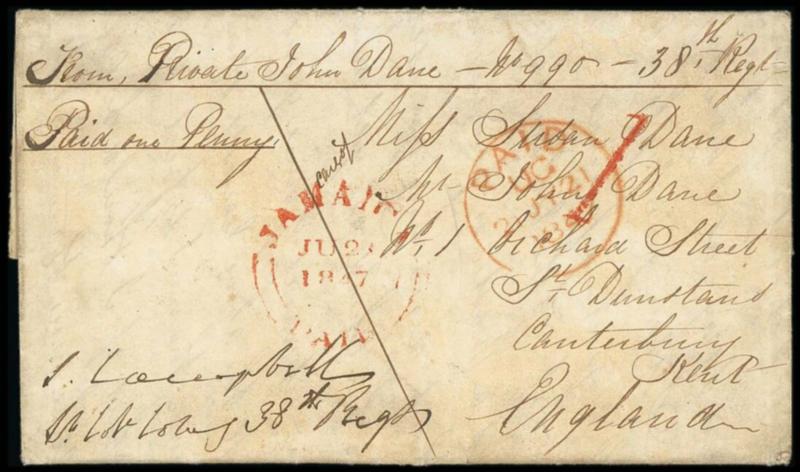 From, Private John Dane – No 990 – 38th Regt
Paid one Penny.
Miss Susan Dane
At John Dane
No. 1 Orchard Street
St. Dunstans
Canterbury
Kent
England
JAMAICA
JU 2
1847
PAID
PAID
21
184
S. Campbell
38th Regt